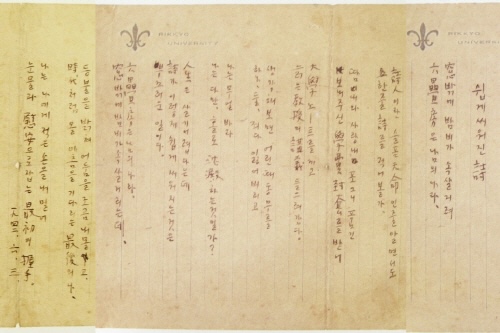 RIKKYO
UNIVERSITY
RIKKYO
UNIVERSITY
쉽게 씨워진 詩
窓밖에 밤비가 속살거려
六疊房은 남의 나라,
詩人이란 슬픈天命인줄알면서도
한줄詩를 적어볼가,
땀내와 사랑내 포그니 품긴
보내주신 學費封套를받어
大學노―트를 끼고
늙은敎授의講義 들으려간다.
생각해보면 어린때동무를
하나, 둘, 죄다 잃어버리고
나는 무얼 바라
나는 다만, 홀로 沈澱하는것일가?
人生은 살기어렵다는데
詩가 이렇게 쉽게 씨워지는것은
부끄러운 일이다.
六疊房은남의 나라
窓밖에밤비가속살거리는데,
등불을 밝혀 어둠을 조곰 내몰고,
時代처럼 올 아츰을 기다리는 最後의 나,
나는 나에게 적은 손을 내밀어
눈물과 慰安으로잡는 最初의 握手.
一九四二、六、三.